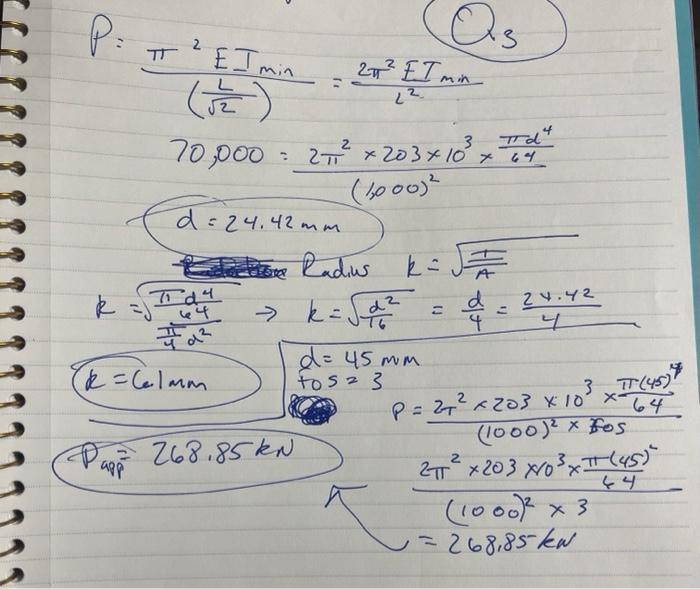 Q3
P = π² E I min / (L/√2) = 2π² E I min / L²
70,000 = 2π² × 203 × 10³ × πd⁴/64 / (1,000)²
d = 24.42 mm
Radius k = √(I/A)
k = √(πd⁴/64 / π/4 d²) → k = √(d²/16) = d/4 = 24.42/4
k = 6.1mm
d = 45 mm
fos = 3
P = 2π² × 203 × 10³ × π(45)⁴/64 / (1000)² × fos
Papp = 268.85 kN
2π² × 203 × 10³ × π(45)⁴/64 / (1000)² × 3
= 268.85 kN